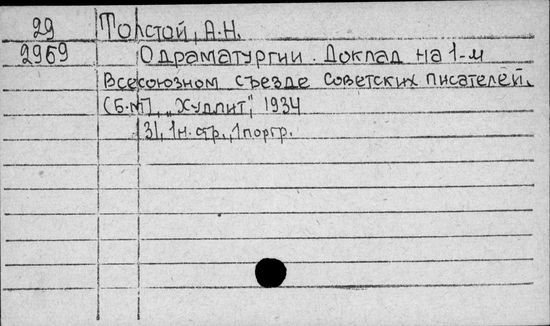 29 Толстой, А.Н.
2969 О драматургии. Доклад на 1-м
Всесоюзном съезде советских писателей.
[Б.м.], „Худлит", 1934
31, 1 н. стр., 1 портр.